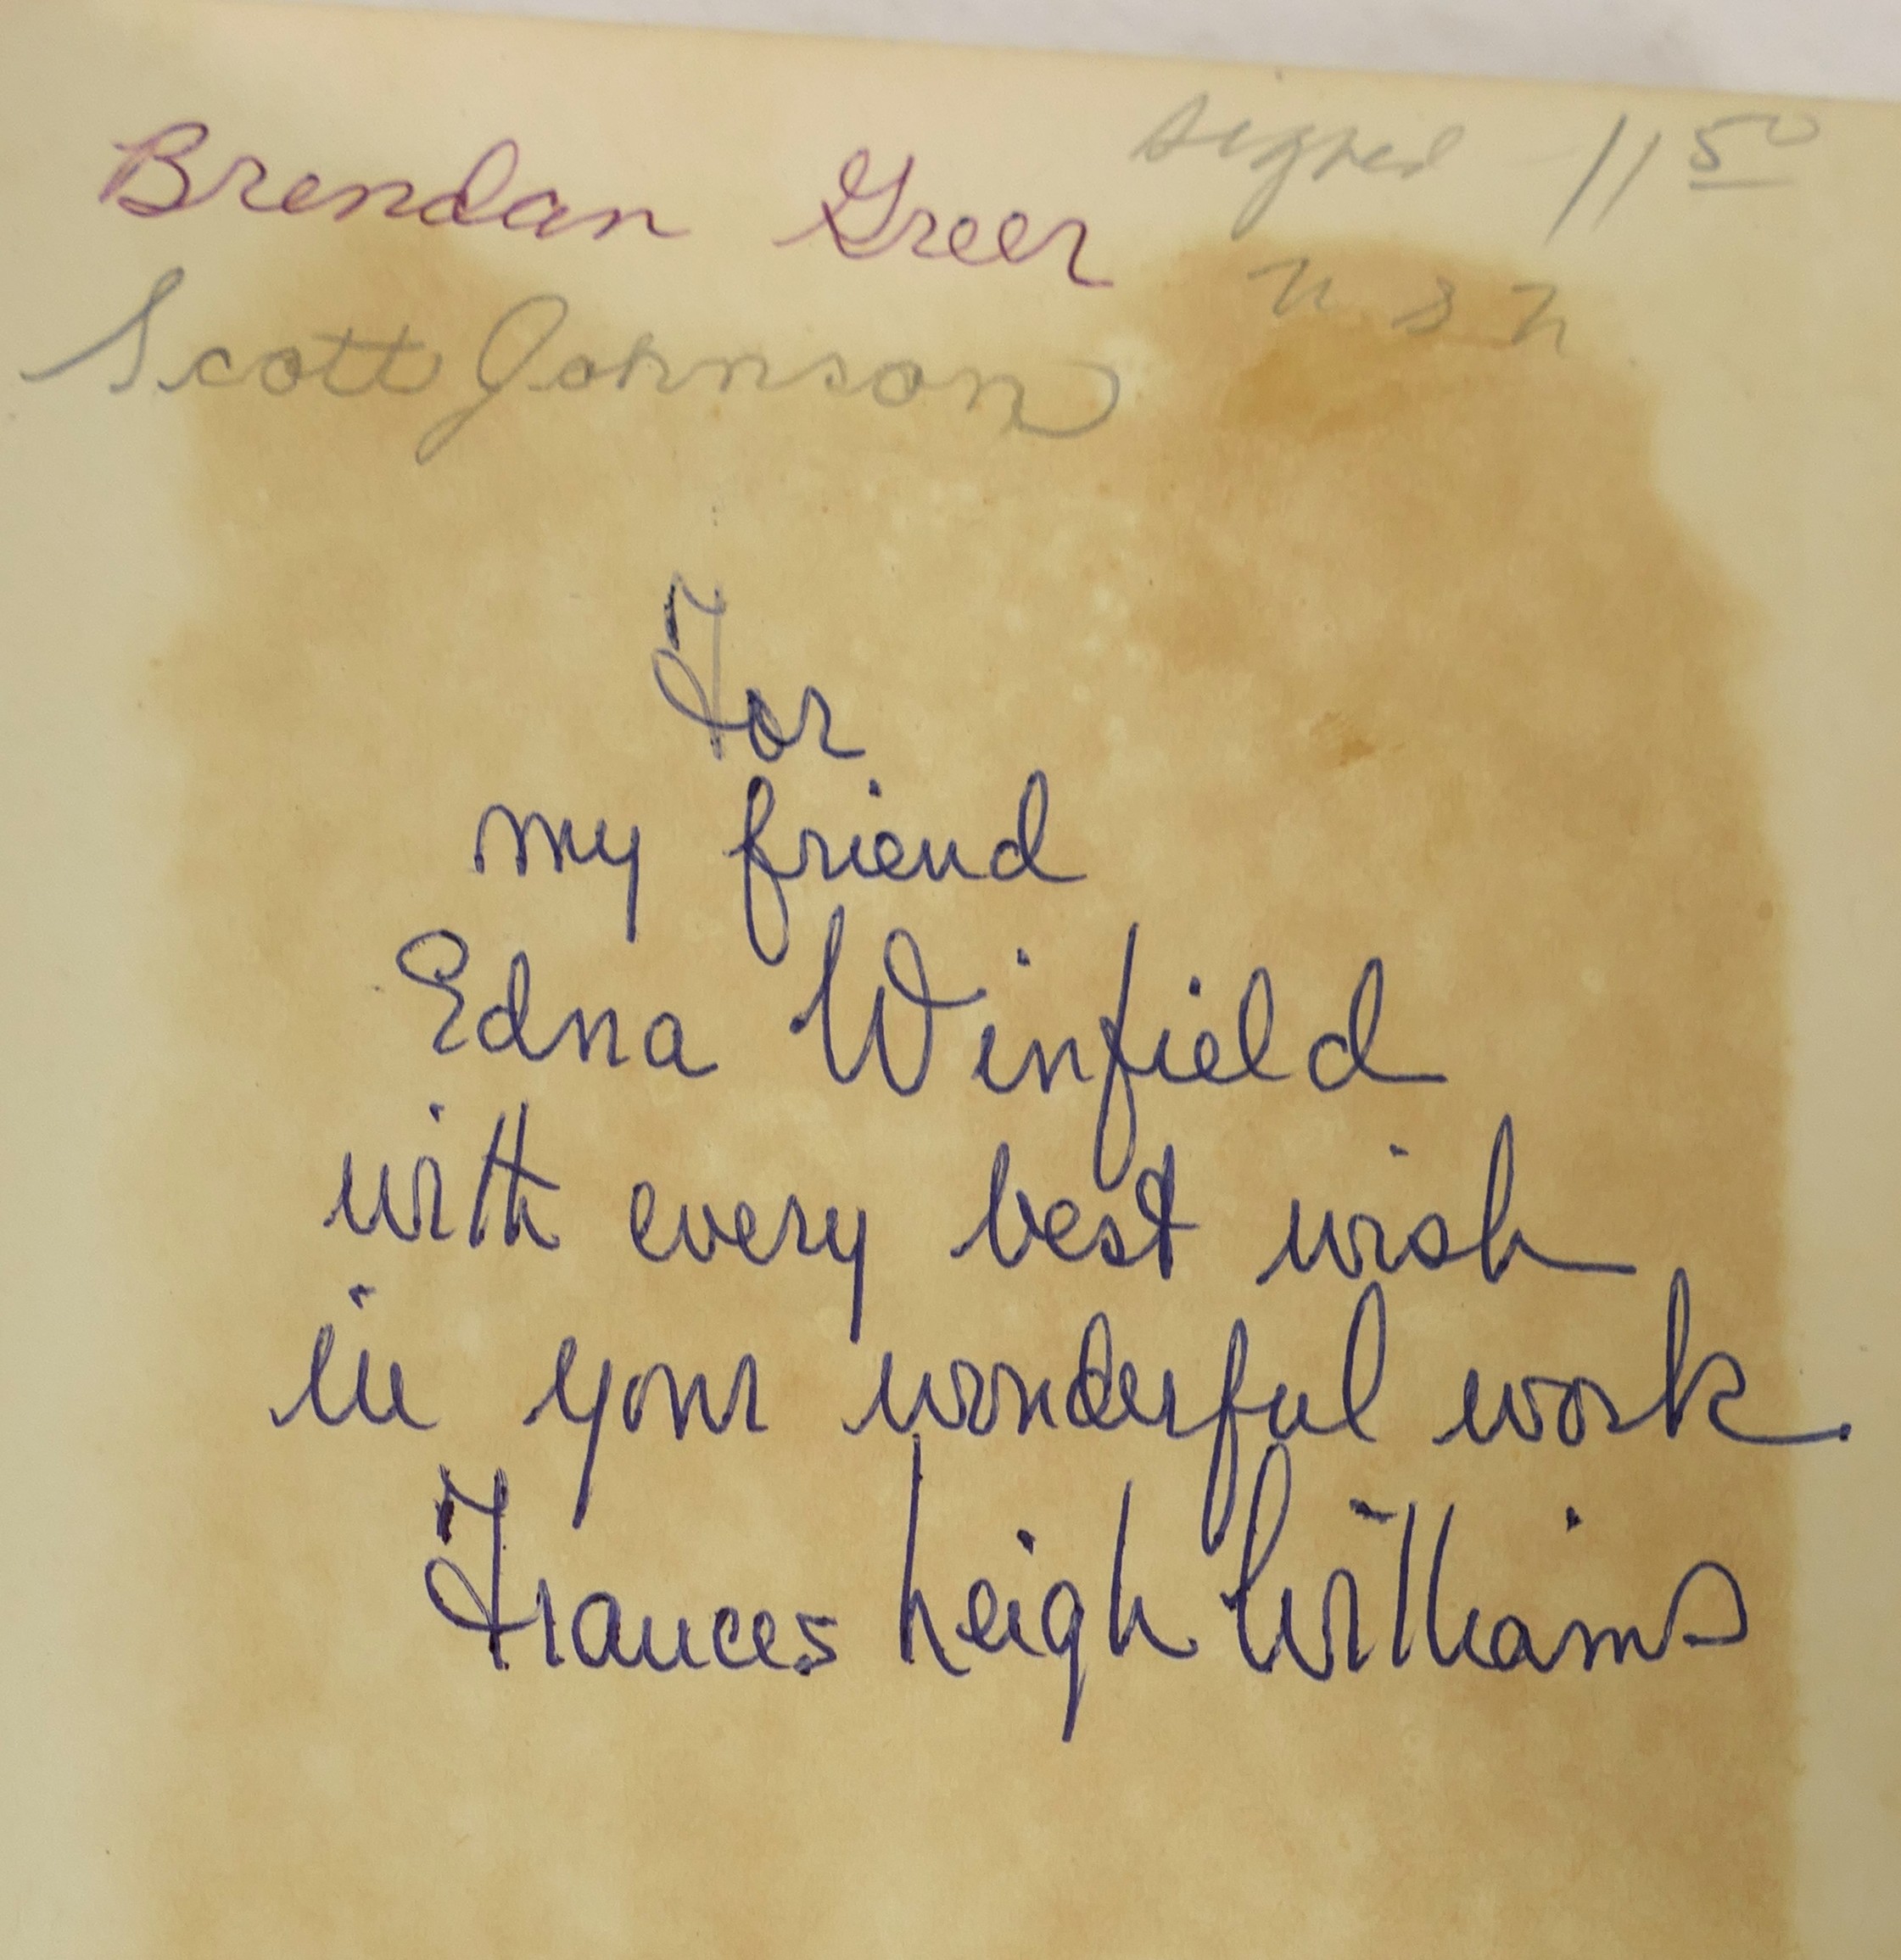 Brendan Greer
signed - 11 50
Scott Johnson
For
my friend
Edna Winfield
with every best wish
in your wonderful work.
Frances Leigh Williams